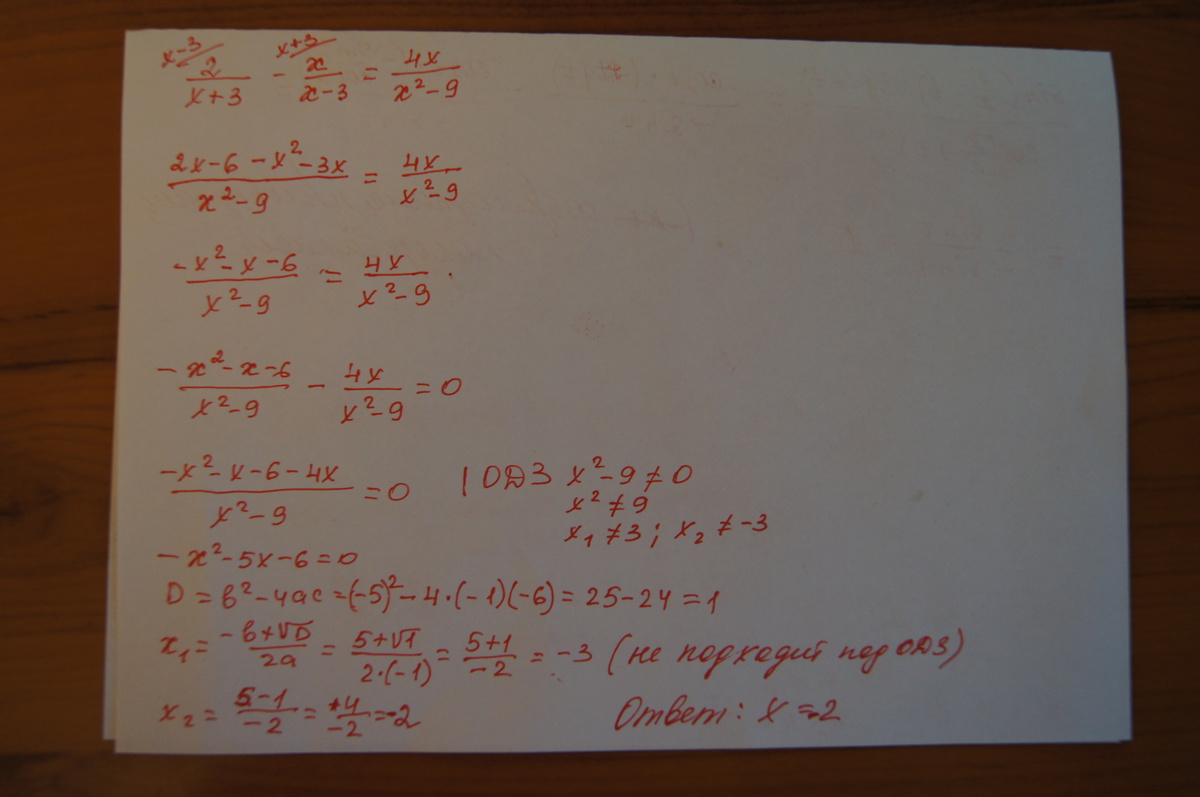 x-3 2/(x+3) - x+3 x/(x-3) = 4x/(x²-9)
(2x-6-x²-3x)/(x²-9) = 4x/(x²-9)
(-x²-x-6)/(x²-9) = 4x/(x²-9)
(-x²-x-6)/(x²-9) - 4x/(x²-9) = 0
(-x²-x-6-4x)/(x²-9) = 0 | ОДЗ x²-9≠0
x²≠9
x₁≠3; x₂≠-3
-x²-5x-6=0
D = b²-4ac = (-5)²-4·(-1)(-6) = 25-24 = 1
x₁ = (-b+√D)/2a = (5+√1)/(2·(-1)) = (5+1)/-2 = -3 (не подходит под ОДЗ)
x₂ = (5-1)/-2 = +4/-2 = -2 Ответ: x = -2